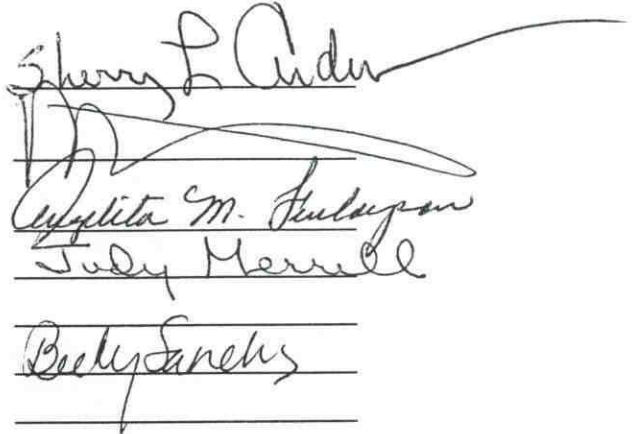 Sherry L Ander
Angelita M. Finlayson
Judy Merrill
Becky Sanchez